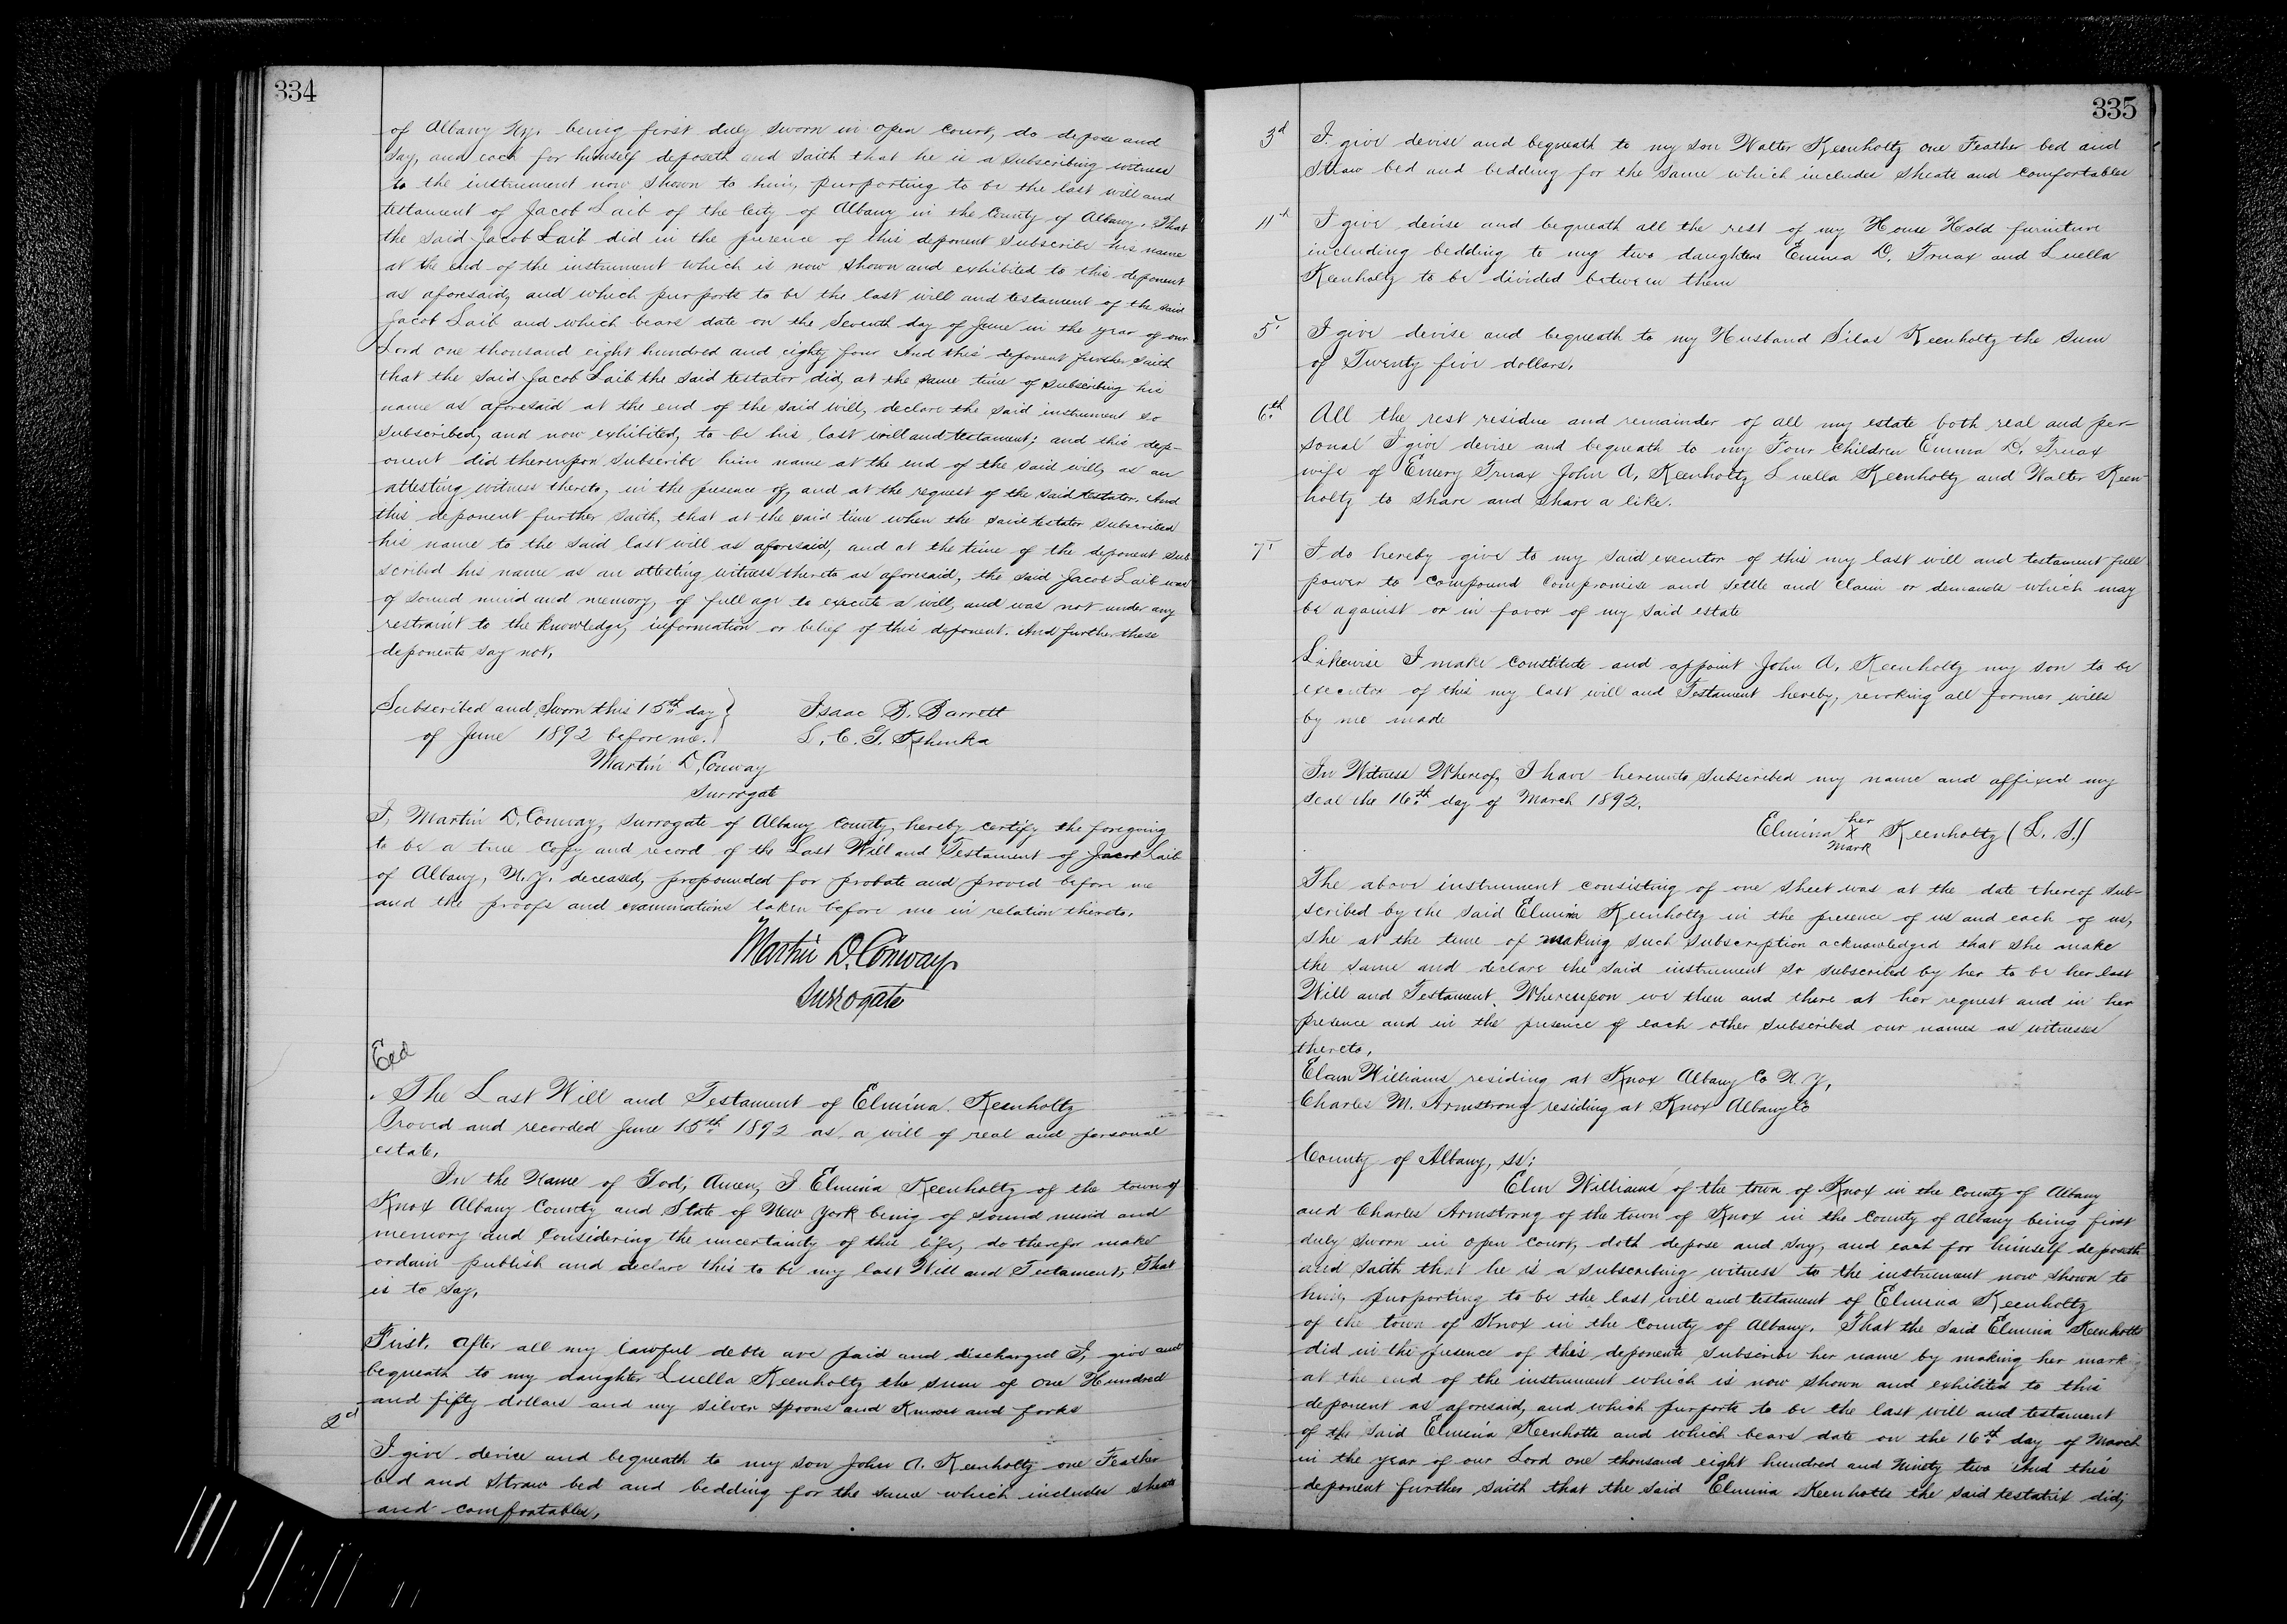 334
of Albany Ny. being first duly sworn in open court, do depose and
say, and each for himself deposeth and saith that he is a subscribing witness
to the instrument now shown to him, purporting to be the last will and
testament of Jacob Laib of the City of Albany in the County of Albany. That
the said Jacob Laib did in the presence of this deponent subscribe his name
at the end of the instrument which is now shown and exhibited to this deponent
as aforesaid, and which purports to be the last will and testament of the said
Jacob Laib and which bears date on the Seventh day of June in the year of our
Lord one thousand eight hundred and eighty four And this deponent further saith
that the said Jacob Laib the said testator did, at the same time of subscribing his
name as aforesaid at the end of the said will, declare the said instrument so
subscribed, and now exhibited, to be his last will and testament; and this dep-
onent did thereupon subscribe him name at the end of the said will, as an
attesting witness thereto, in the presence of, and at the request of the said testator. And
this deponent further saith, that at the said time when the said testator subscribed
his name to the said last will as aforesaid, and at the time of the deponent sub
scribed his name as an attesting witness thereto as aforesaid, the said Jacob Laib was
of sound mind and memory, of full age to execute a will, and was not under any
restraint to the knowledge, information or belief of this deponent. And further these
deponents say not.
Subscribed and Sworn this 15th day
of June 1892 before me.
Isaac B. Barrett
L. C. G.
Martin D. Conway
Surrogate
I, Martin D. Conway, Surrogate of Albany County, hereby certify the foregoing
to be a true copy and record of the Last Will and Testament of Jacob Laib
of Albany, N.Y. deceased, propounded for probate and proved before me
and the proofs and examinations taken before me in relation thereto.
Martin D. Conway
Surrogate
The Last Will and Testament of Elmina Keenholtz
Proved and recorded June 15th 1892 as a will of real and personal
estate.
In the Name of God, Amen, I Elmina Keenholtz of the town of
Knox Albany County and State of New York being of sound mind and
memory and considering the uncertainity of this life, do therefor make
ordain publish and declare this to be my last Will and Testament, That
is to say,
First. After all my lawful debts are paid and discharged I, give and
bequeath to my daughter Luella Keenholtz the sum of One Hundred
and fifty dollars and my silver spoons and Knives and forks
2d
I give devise and bequeath to my son John A. Keenholtz one Feather
bed and Straw bed and bedding for the same which includes sheats
and comfortables,
335
3d I give devise and bequeath to my son Walter Keenholtz one Feather bed and
Straw bed and bedding for the same which includes sheats and comfortables
I give devise and bequeath all the rest of my House Hold furniture
including bedding to my two daughters Emma D. Truax and Luella
Keenholtz to be divided between them
5 I give devise and bequeath to my Husband Silas Keenholtz the sum
of Twenty five dollars.
6th All the rest residue and remainder of all my estate both real and per-
sonal I give devise and bequeath to my Four Children Emma D. Truax
wife of Emery Truax John A. Keenholtz Luella Keenholtz and Walter Keen
holtz to share and share a like.
7 I do hereby give to my said executor of this my last will and testament full
power to compound compromise and settle and claim or demands which may
be against or in favor of my said estate
Likewise I make constitute and appoint John A. Keenholtz my son to be
executor of this my last will and Testament hereby, revoking all former wills
by me made
In Witness Whereof, I have hereunto subscribed my name and affixed my
seal the 16th day of March 1892.
her
Elmina X Keenholtz (L. S.)
mark
The above instrument consisting of one sheet was at the date thereof sub-
scribed by the said Elmina Keenholtz in the presence of us and each of us,
she at the time of making such subscription acknowledged that she make
the same and declare the said instrument so subscribed by her to be her last
Will and Testament. Whereupon we then and there at her request and in her
presence and in the presence of each other subscribed our names as witnesses
thereto.
Elam Williams residing at Knox Albany Co N.Y.
Charles M. Armstrong residing at Knox Albany Co
County of Albany, ss:
Elm Williams of the town of Knox in the County of Albany
and Charles Armstrong of the town of Knox in the County of Albany being first
duly sworn in open court, doth depose and say, and each for himself deposeth
and saith that he is a subscribing witness to the instrument now shown to
him, purporting to be the last will and testament of Elmina Keenholtz
of the town of Knox in the County of Albany. That the said Elmina Keenholtz
did in the presence of this deponents subscribe her name by making her mark
at the end of the instrument which is now shown and exhibited to this
deponent as aforesaid, and which purports to be the last will and testament
of the said Elmina Keenholts and which bears date on the 16th day of March
in the year of our Lord one thousand eight hundred and Ninety two And this
deponent further saith that the said Elmina Keenholts the said testatrix did,